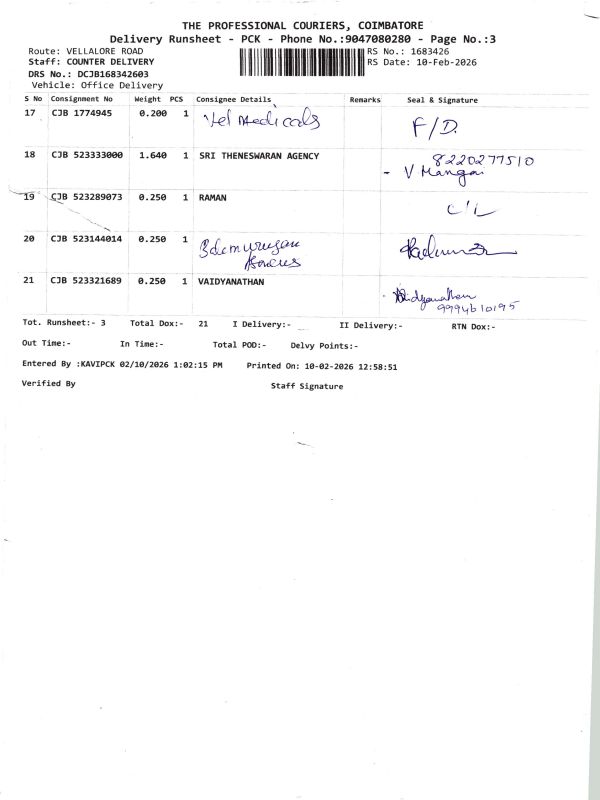 THE PROFESSIONAL COURIERS, COIMBATORE
Delivery Runsheet - PCK - Phone No.:9047080280 - Page No.:3
Route: VELLALORE ROAD RS No.: 1683426
Staff: COUNTER DELIVERY RS Date: 10-Feb-2026
DRS No.: DCJB168342603
Vehicle: Office Delivery
S No Consignment No Weight PCS Consignee Details Remarks Seal & Signature
17 CJB 1774945 0.200 1 Vel Medicals F/D.
18 CJB 523333000 1.640 1 SRI THENESWARAN AGENCY 8220277510
- V Mangai
19 CJB 523289073 0.250 1 RAMAN
20 CJB 523144014 0.250 1
21 CJB 523321689 0.250 1 VAIDYANATHAN Vaidyanathan
9994610195
Tot. Runsheet:- 3 Total Dox:- 21 I Delivery:- II Delivery:- RTN Dox:-
Out Time:- In Time:- Total POD:- Delvy Points:-
Entered By :KAVIPCK 02/10/2026 1:02:15 PM Printed On: 10-02-2026 12:58:51
Verified By Staff Signature